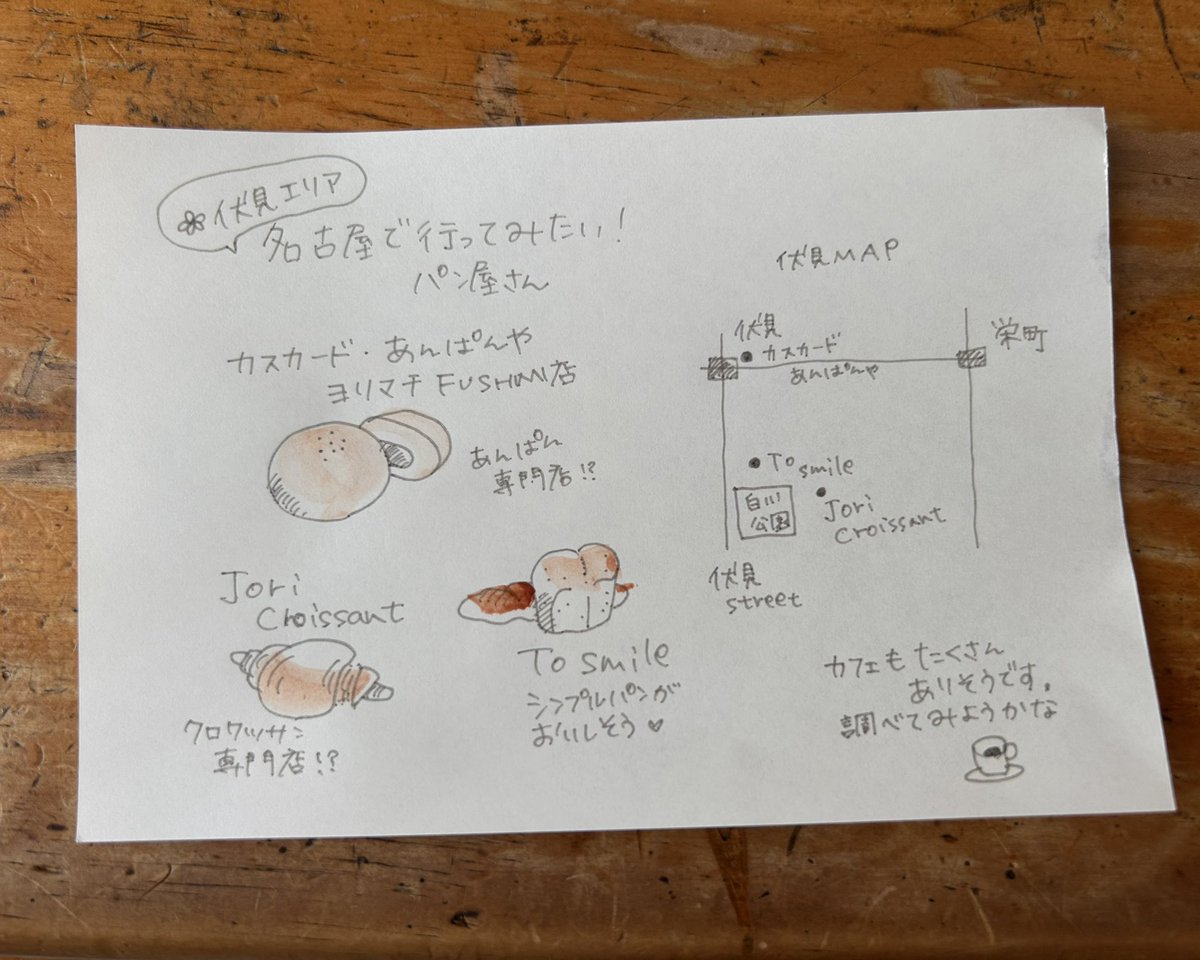 伏見エリア
名古屋で行ってみたい！
パン屋さん
カスカード・あんぱんや
ヨリマチ FUSHIMI店
あんぱん
専門店!?
Jori
Croissant
クロワッサン
専門店!?
To smile
シンプルパンが
おいしそう♥
伏見MAP
伏見
カスカード
あんぱんや
栄町
To
smile
白川
公園
Jori
Croissant
伏見
street
カフェもたくさん
ありそうです。
調べてみようかな